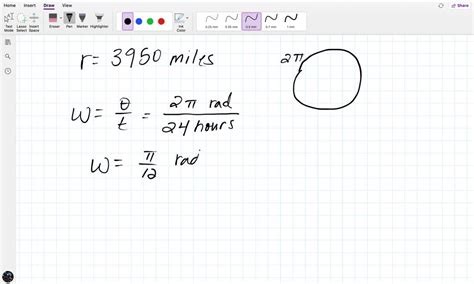 Home Insert Draw View
Share
Text Mode Lasso Select Insert Space Eraser Pen Marker Highlighter Ink Color 0.25 mm 0.35 mm 0.5 mm 0.7 mm 1 mm
r = 3950 miles
2π
ω = θ/t = 2π rad/24 hours
ω = π/12 rad